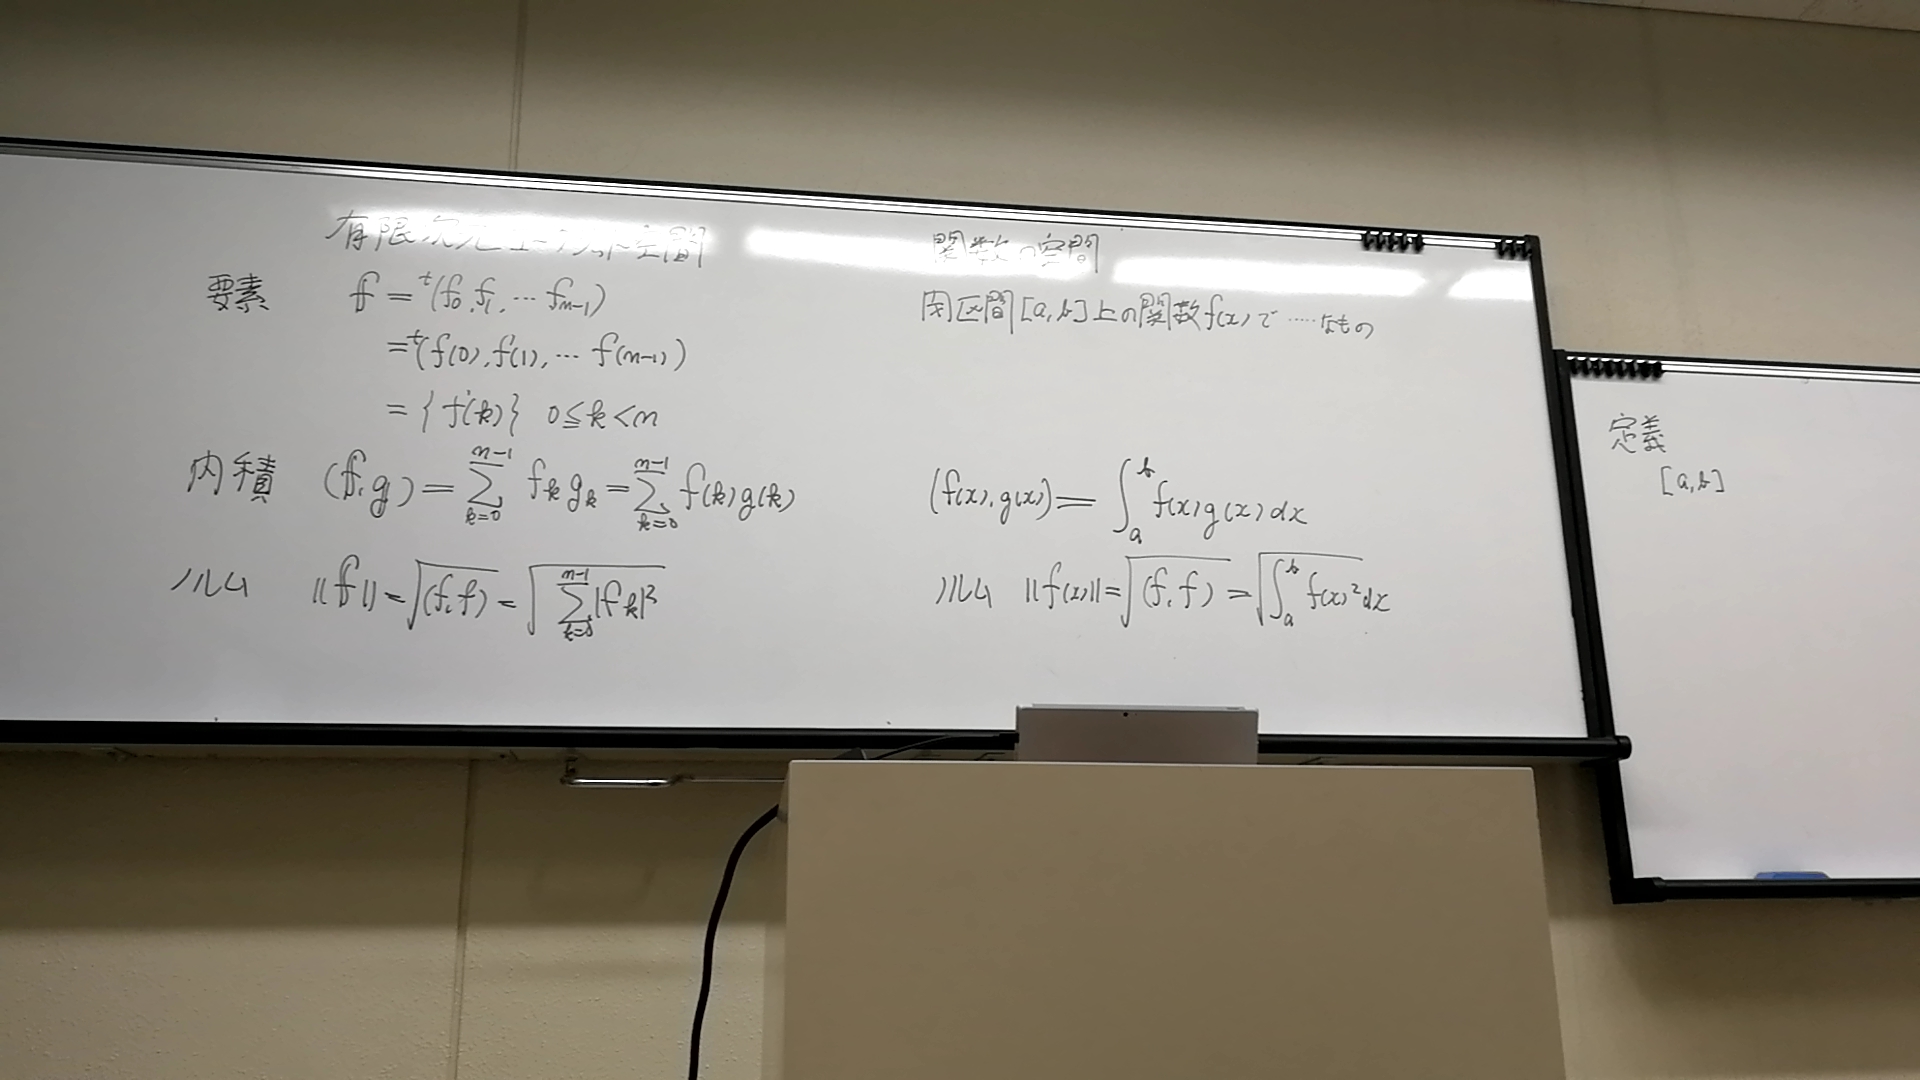 有限次元ユークリッド空間
要素 f = ᵗ(f₀, f₁, … fₙ₋₁)
= ᵗ(f(0), f(1), … f(n-1))
= {f(k)} 0≦k<n
内積 (f, g) = Σ_{k=0}^{n-1} fₖ gₖ = Σ_{k=0}^{n-1} f(k)g(k)
ノルム ||f|| = √(f, f) = √Σ_{k=0}^{n-1} |fₖ|²
関数の空間
閉区間[a, b]上の関数f(x)で……なもの
(f(x), g(x)) = ∫_a^b f(x)g(x)dx
ノルム ||f(x)|| = √(f, f) = √∫_a^b f(x)²dx
定義
[a, b]